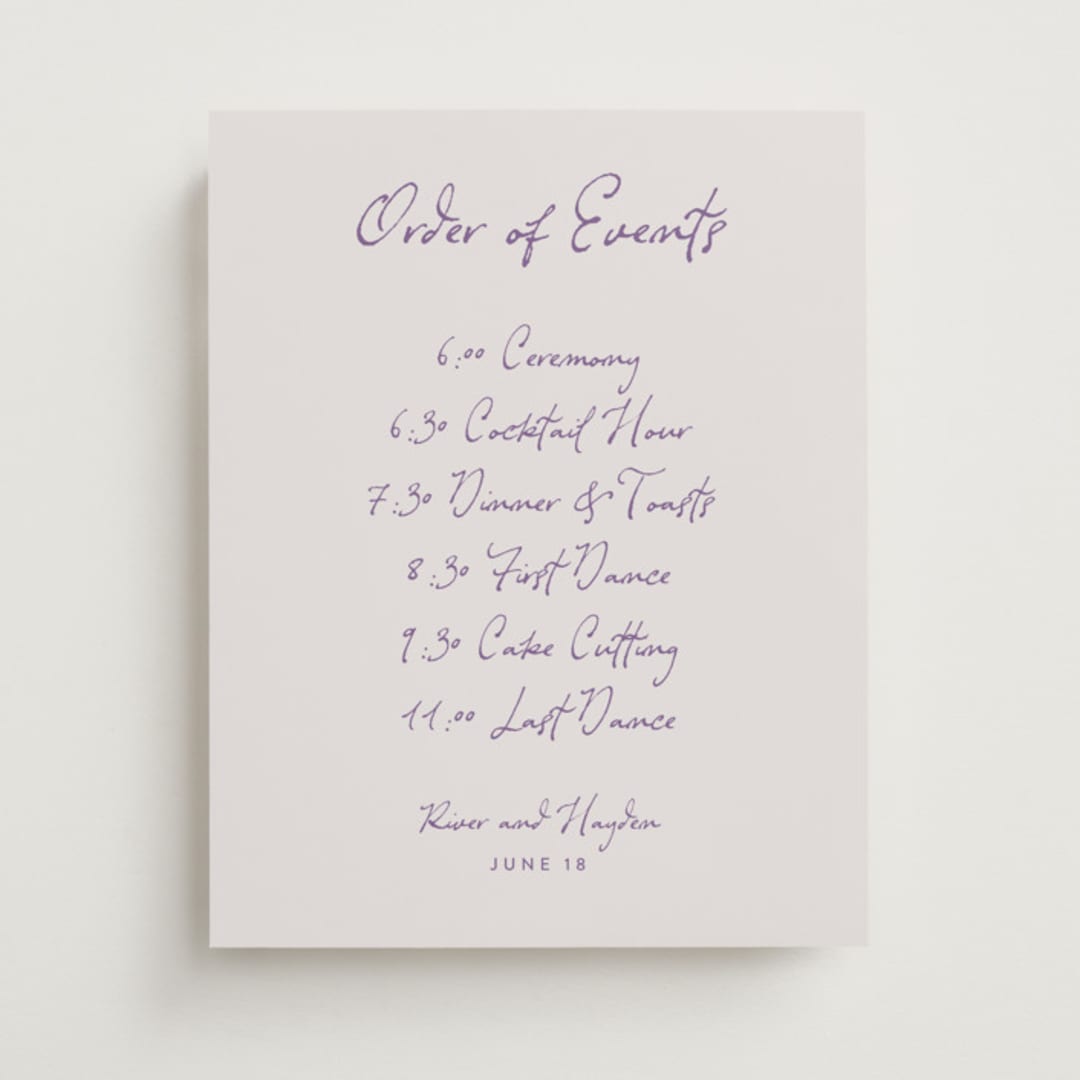 Order of Events
6:00 Ceremony
6:30 Cocktail Hour
7:30 Dinner & Toasts
8:30 First Dance
9:30 Cake Cutting
11:00 Last Dance
River and Hayden
JUNE 18